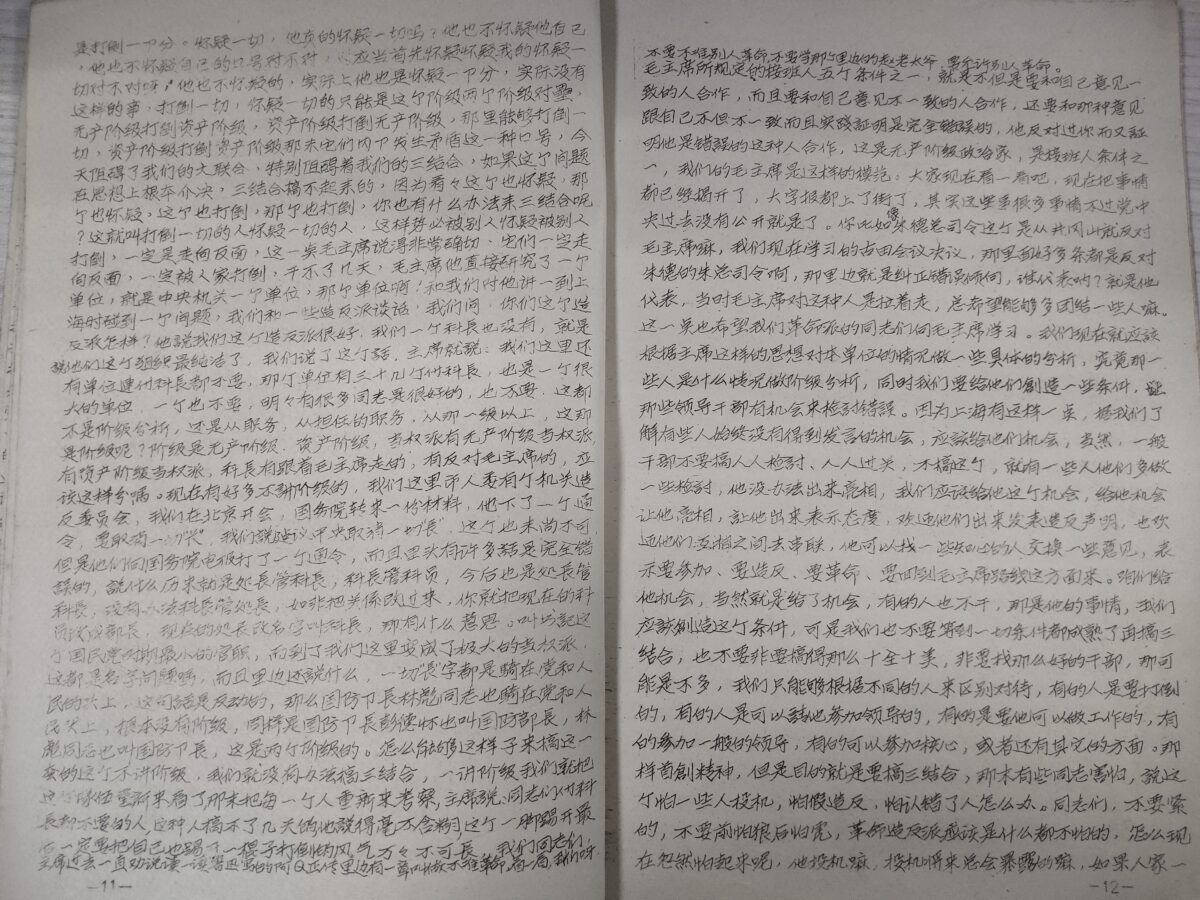 是打倒一部分。怀疑一切,他真的怀疑一切吗?他也不怀疑他自己
,他也不怀疑自己的口号对不对,应当首先怀疑怀疑我的怀疑一
切对不对呀,他也不怀疑的,实际上他也是怀疑一部分,实际没有
这样的事,打倒一切,怀疑一切的只能是这个阶级两个阶级对垒,
无产阶级打倒资产阶级,资产阶级打倒无产阶级,那里能够打倒一
切,资产阶级打倒资产阶级那末它们内部发生矛盾这一种口号,今
天阻碍了我们的大联合,特别阻碍着我们的三结合,如果这个问题
在思想上想不介决,三结合搞不起来的,因为看々这个也怀疑,那
个也怀疑,这个也打倒,那个也打倒,你也有什么办法来三结合呢
?这就叫打倒一切的人怀疑一切的人,这样势必被别人怀疑被别人
打倒,一定是走向反面,这一点毛主席说得非常确切,它们一定走
向反面,一定被人家打倒,干不了几天,毛主席他直接研究了一个
单位,就是中央机关一个单位,那个单位啊!和我们对他讲一到上
海时碰到一个问题,我们和一些造反派谈话,我们问,你们这个造
反派怎样?他说我们这个造反派很好,我们一个科長也没有,就是
說他们这个组织最纯洁了,我们说了这个話,主席就説:我们这里还
有单位連付科長都不要,那个单位有三十几个付科長,也是一个很
大的单位,一个也不要,明々有很多同志是很好的,也不要,这都
不是阶级分析,还是从职务,从担任的职务,从那一级以上,这那
是阶级呢?阶级是无产阶级、资产阶级,当权派有无产阶级当权派,
有资产阶级当权派,科長有跟着毛主席走的,有反对毛主席的,应
该这样分嘛。现在有好多不讲阶级的,我们这里市人委有个机关造
反委员会,我们在北京开会,国务院转来一份材料,他下了一个通
令,要取消一切"长",我们說建议中央取消一切"長",这个也未尚不可
但是他们向国务院电报打了一个通令,而且里头有许多話是完全错
誤的,說什么历来就是处長管科長,科長管科员,今后也是处長管
科長,没有办法科長管处長,如非把关係改过来,你就把现在的科
员改成部長,现在的处長改名字叫科長,那有什么意思。叫书記这
个国民党时期最小的官职,而到了我们这里变成了极大的当权派,
这都是名字问題嗎,而且里边还説什么,一切"長"字都是騎在党和人
民的头上,这句話是反动的,那么国防部長林彪同志也騎在党和人
民头上,根本没有阶级,同样是国防部長彭德怀也叫国防部長,林
彪同志也叫国防部長,这是两个阶级的。怎么能够这样子来搞这一
类的这个不讲阶级,我们就没有办法搞三结合,一讲阶级我们就把
这个队伍重新来看了那末把每一个人重新来考察,主席說,同志们付科
長都不要的人,这种人搞不了几天的他說得毫不含糊,这个一脚踢开最
后一定要把自己也踢,一棵子打倒的风气万々不可長,我们同志们,
主席过去一直劝说读一读鲁迅写的阿Q正传里边有一章叫做不准革命,看一看,我们呀,
—11—
不要不准别人革命,不要学那个里边的赵老太爷,要允许别人革命。
毛主席所规定的接班人五个条件之一,就是不但是要和自己意见一
致的人合作,而且要和自己意见不一致的人合作,还要和那种意见
跟自己不但不一致而且实践証明是完全错誤的,他反对过你而又証
明他是错誤的这种人合作,这是无产阶级政治家,是接班人条件之
一,我们的毛主席是这样的模范,大家现在看一看吧,现在把事情
都已經揭开了,大字报都上了街了,其实这些事很多事情不过党中
央过去没有公开就是了。你比如像朱德总司令这个是从井冈山就反对
毛主席嘛,我们现在学习的古田会议决议,那里面好多条都是反对
朱德的朱总司令啊,那里边就是纠正错誤倾向,谁代表呐?就是他
代表,当时毛主席对这种人是拉着走,总希望能够多团结一些人嘛。
这一点也希望我们革命派的同志们向毛主席学习。我们现在就应该
根据主席这样的思想对本单位的情况做一些具体的分析,究竟那一
些人是什么情况做阶级分析,同时我们要给他们創造一些条件,让
那些領导干部有机会来检討错誤。因为上海有这样一点,据我们了
解有些人始终没有得到发言的机会,应該给他们机会,当然,一般
干部不要搞人人检討、人人过关,不搞这个,就有一些人他们多做
一些检討,他没办法出来亮相,我们应该给他这个机会,给他机会
让他亮相,让他出来表示态度,欢迎他们出来发表造反声明,也欢
迎他们互相之间去串联,他可以找一些知心的人交换一些意见,表
示要参加、要造反、要革命、要回到毛主席路线这方面来。咱们给
他机会,当然就是给了机会,有的人也不干,那是他的事情,我们
应該創造这个条件,可是我们也不要等到一切条件都成熟了再搞三
结合,也不要非要搞得那么十全十美,非要找那么好的干部,那可
能是不多,我们只能够根据不同的人来区别对待,有的人是要打倒
的,有的人是可以請他参加领导的,有的是要他可以做工作的,有
的参加一般的领导,有的可以参加核心,或者还有其它的方面。那
样首創精神,但是目的就是要搞三结合,那末有些同志害怕,說这
个怕一些人投机,怕假造反,怕认错了人怎么办。同志们,不要紧
的,不要前怕狼后怕虎,革命造反派应该是什么都不怕的,怎么现
在忽然怕起来呢,他投机嘛,投机将来总会暴露的嘛,如果人家一
—12—